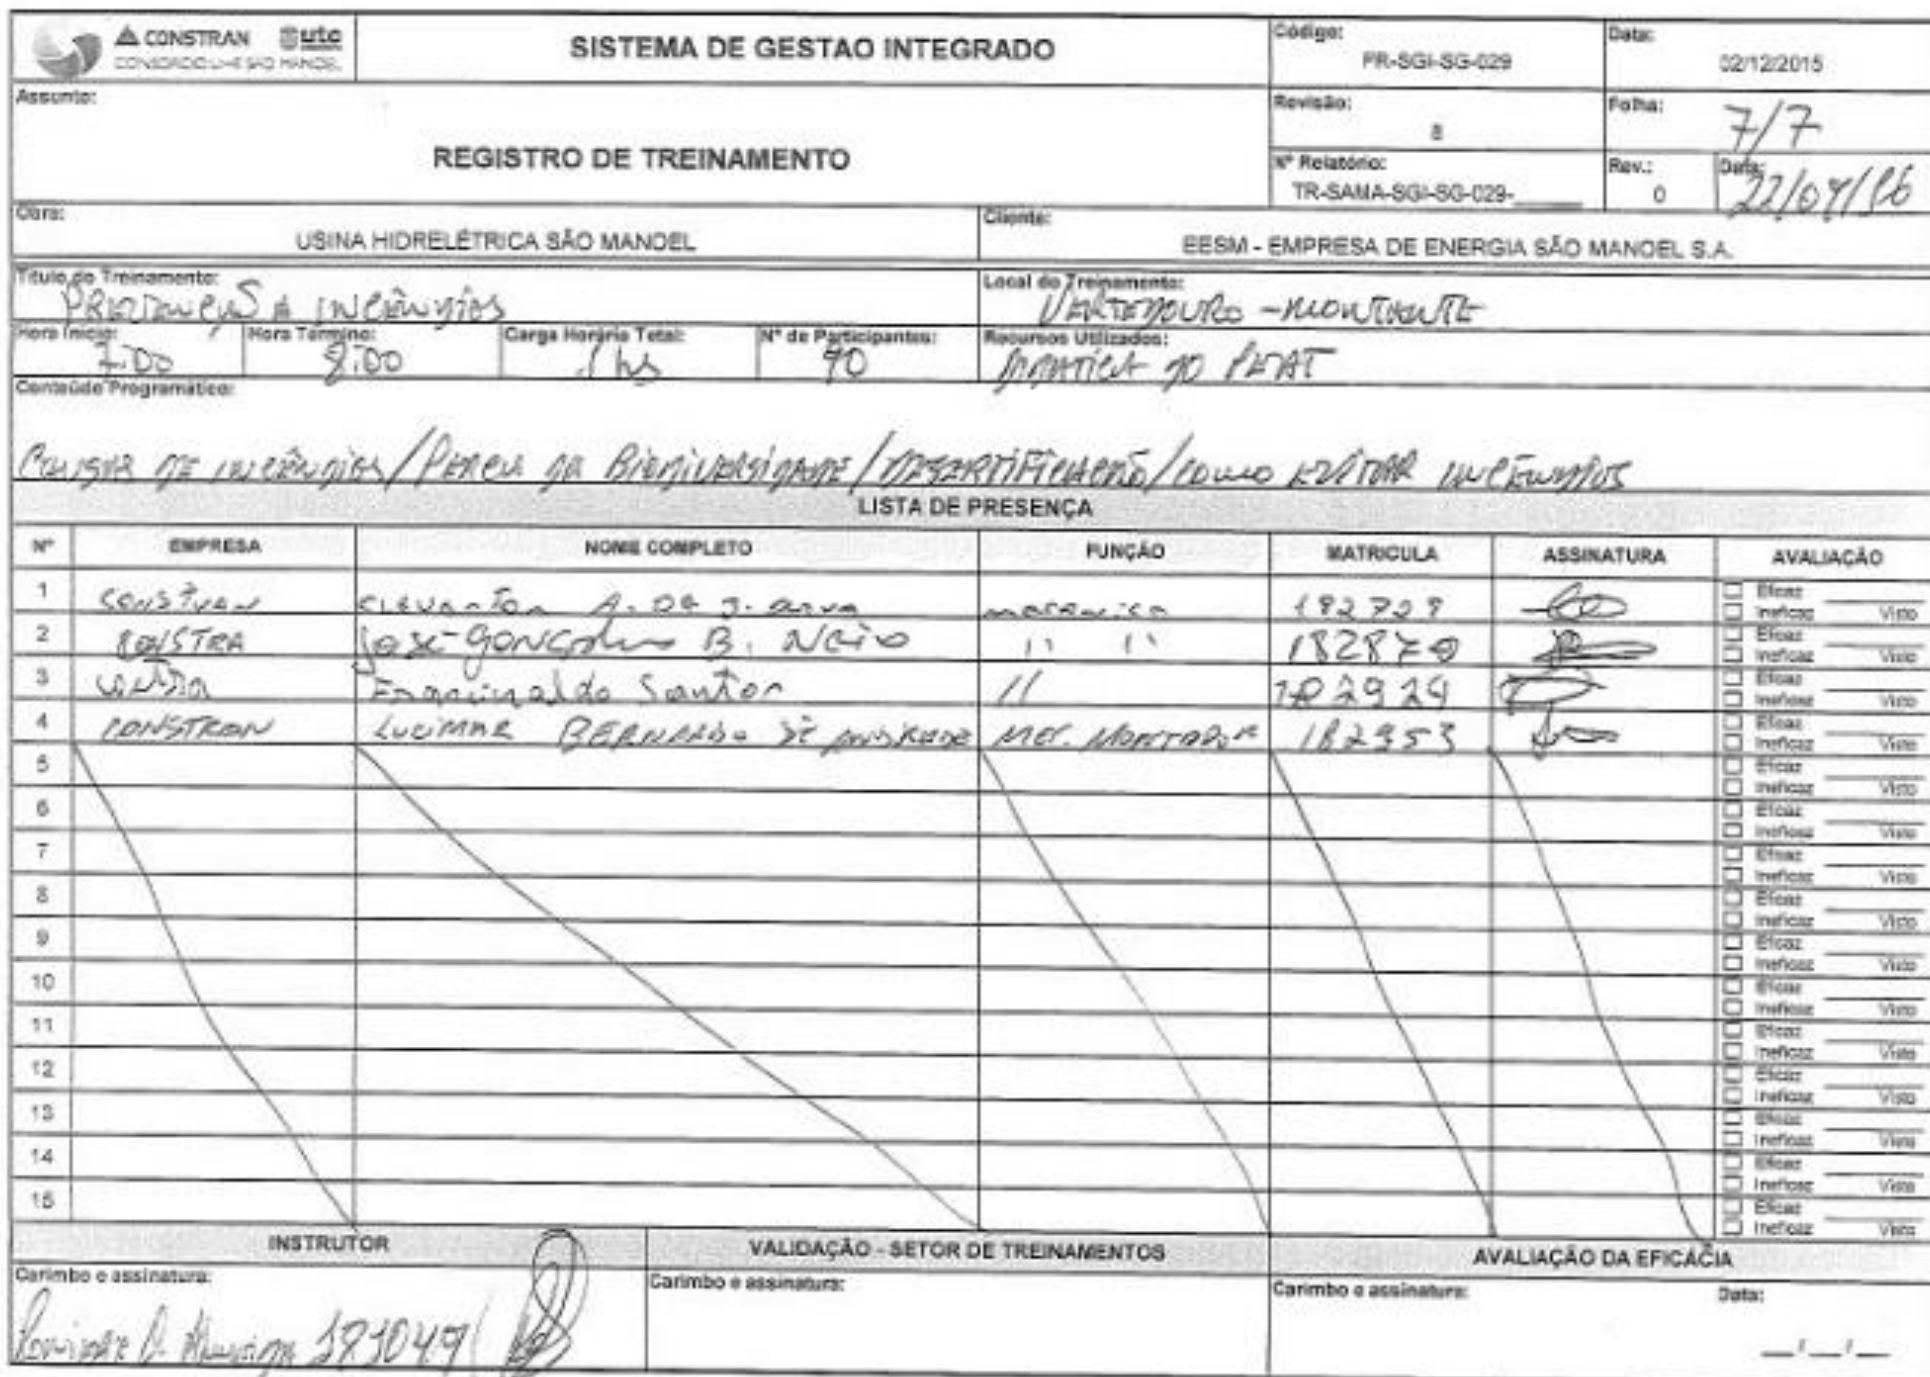 CONSTRAN utc
CONSORCIO UHE SÃO MANOEL
SISTEMA DE GESTAO INTEGRADO
Código: PR-SGI-SG-029
Data: 02/12/2015
Assunto:
REGISTRO DE TREINAMENTO
Revisão: 8
Folha: 7/7
Nº Relatório: TR-SAMA-SGI-SG-029-
Rev.: 0
Data:
Obra: USINA HIDRELÉTRICA SÃO MANOEL
Cliente: EESM - EMPRESA DE ENERGIA SÃO MANOEL S.A.
Título do Treinamento: A INCÊNDIOS
Local do Treinamento: VERTEDOURO - MONTANTE
Hora Início: 7:00
Hora Término: 8:00
Carga Horária Total: 1 hs
Nº de Participantes: 90
Recursos Utilizados:
Conteúdo Programático:
CAUSAS DE INCÊNDIOS / PERCA DA BIODIVERSIDADE / DESERTIFICAÇÃO / COMO EVITAR INCÊNDIOS
LISTA DE PRESENÇA
Nº EMPRESA NOME COMPLETO FUNÇÃO MATRICULA ASSINATURA AVALIAÇÃO
1 A. De J. mecanico Eficaz
Ineficaz Visto
2 CONSTRA José Gonçalves B. Neto '' '' 182870 Eficaz
Ineficaz Visto
3 Francinaldo Santos // 182924 Eficaz
Ineficaz Visto
4 CONSTRAN LUCIMAR BERNARDO DE ANDRADE MEC. MONTADOR 182953 Eficaz
Ineficaz Visto
5 Eficaz
Ineficaz Visto
6 Eficaz
Ineficaz Visto
7 Eficaz
Ineficaz Visto
8 Eficaz
Ineficaz Visto
9 Eficaz
Ineficaz Visto
10 Eficaz
Ineficaz Visto
11 Eficaz
Ineficaz Visto
12 Eficaz
Ineficaz Visto
13 Eficaz
Ineficaz Visto
14 Eficaz
Ineficaz Visto
15 Eficaz
Ineficaz Visto
INSTRUTOR
VALIDAÇÃO - SETOR DE TREINAMENTOS
AVALIAÇÃO DA EFICÁCIA
Carimbo e assinatura:
Carimbo e assinatura:
Carimbo e assinatura:
Data: